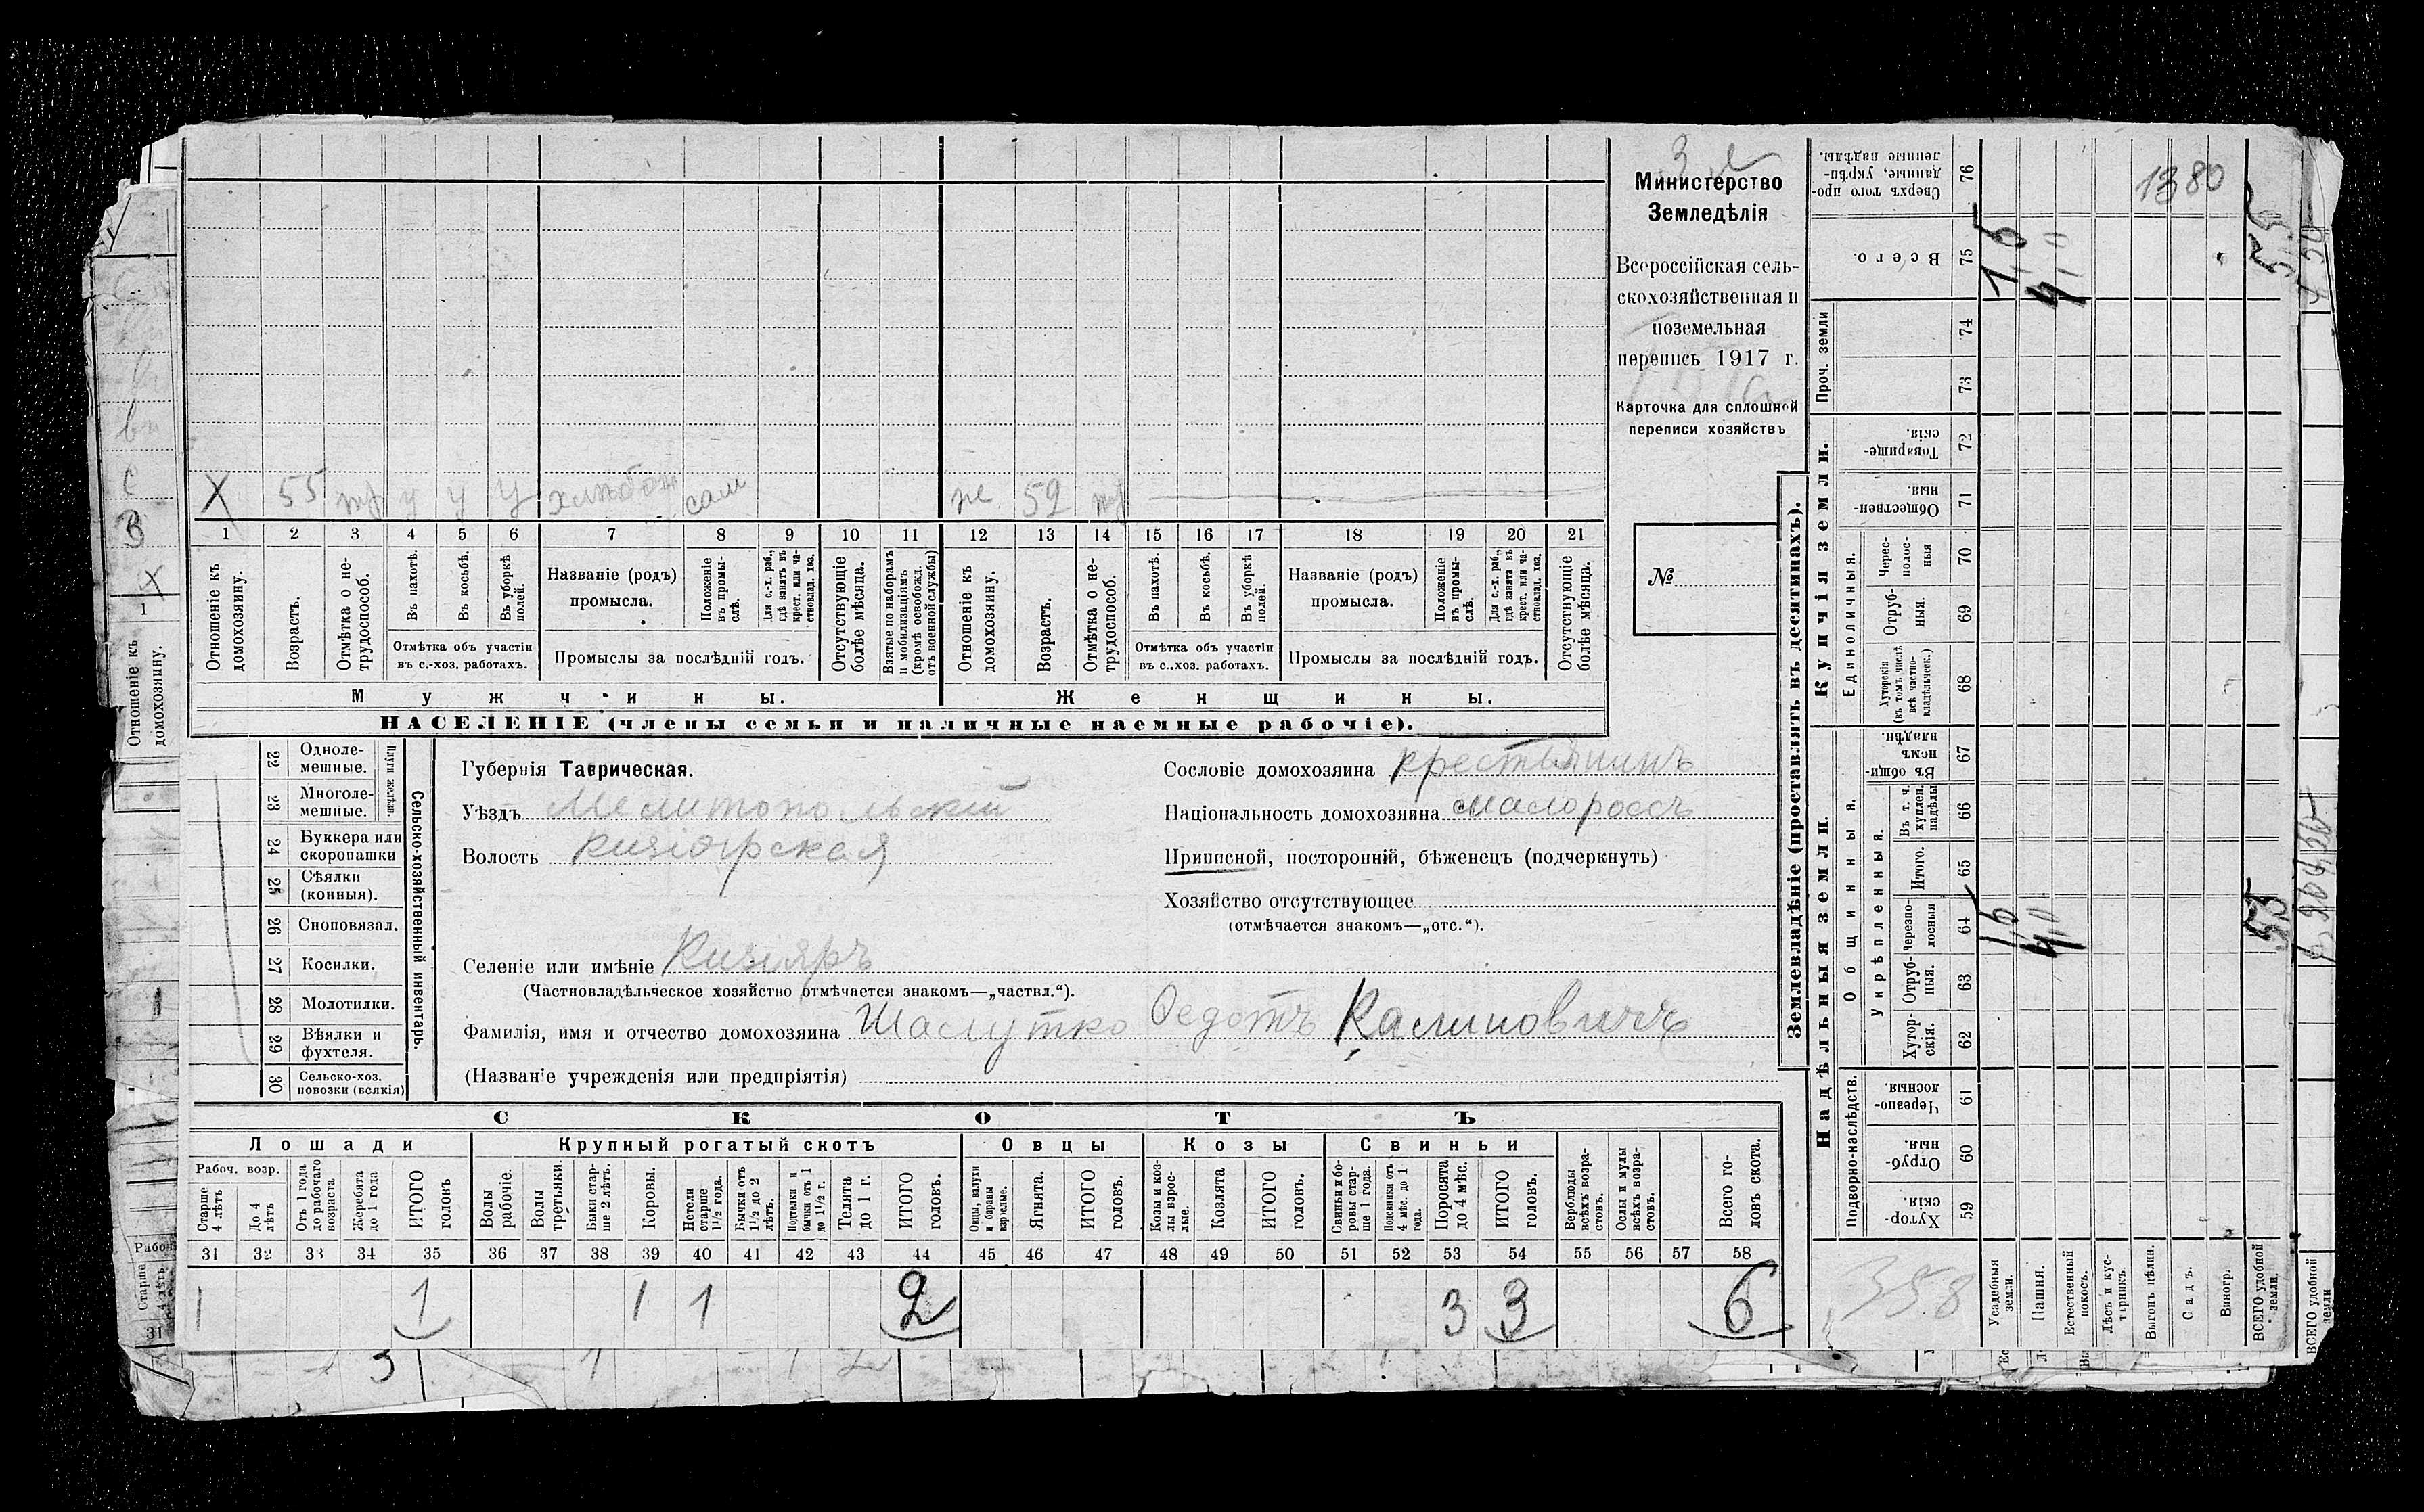 Министерство
Земледѣлія
Всероссійская сель-
скохозяйственная и
поземельная
перепись 1917 г.
Карточка для сплошной
переписи хозяйствъ
№
1380
Х 55 у у у хлѣбоп сам
же 52
1 2 3 4 5 6 7 8 9 10 11 12 13 14 15 16 17 18 19 20 21
Отношеніе къ домохозяину.
Возрастъ.
Отмѣтка о не-трудоспособ.
Въ пахотѣ.
Въ косьбѣ.
Въ уборкѣ полей.
Отмѣтка объ участіи
въ с.-хоз. работахъ.
Названіе (родъ)
промысла.
Положеніе въ промы-слѣ.
Для с.-х. раб., гдѣ занятъ въ крест. или ча-стновлад. хоз.
Промыслы за послѣдній годъ.
Отсутствующіе болѣе мѣсяца.
Взятые по наборамъ и мобилизаціямъ (кромѣ освобожд. отъ военной службы)
Отношеніе къ домохозяину.
Возрастъ.
Отмѣтка о не-трудоспособ.
Въ пахотѣ.
Въ косьбѣ.
Въ уборкѣ полей.
Отмѣтка объ участіи
въ с.-хоз. работахъ.
Названіе (родъ)
промысла.
Положеніе въ промы-слѣ.
Для с.-х. раб., гдѣ занята въ крест. или ча-стновлад. хоз.
Промыслы за послѣдній годъ.
Отсутствующіе болѣе мѣсяца.
Мужчины.
Женщины.
НАСЕЛЕНІЕ (члены семьи и наличные наемные рабочіе).
Сельско-хозяйственный инвентарь.
Плуги желѣзн.
22 Одноле-мешные.
23 Многоле-мешные.
24 Буккера или скоропашки
25 Сѣялки (конныя).
26 Сноповязал.
27 Косилки.
28 Молотилки.
29 Вѣялки и фухтеля.
30 Сельско-хоз. повозки (всякія)
Губернія Таврическая.
Уѣздъ Мелитопольскій
Волость Кизіярская
Селеніе или имѣніе Кизіяръ
(Частновладѣльческое хозяйство отмѣчается знакомъ—„частвл.“).
Фамилія, имя и отчество домохозяина Шаслутко Федотъ Калиновичъ
(Названіе учрежденія или предпріятія)
Сословіе домохозяина крестьянинъ
Національность домохозяина малороссъ
Приписной, посторонній, бѣженецъ (подчеркнуть)
Хозяйство отсутствующее
(отмѣчается знакомъ—„отс.“).
СКОТЪ
Лошади
Крупный рогатый скотъ
Овцы
Козы
Свиньи
Рабоч. возр.
Старше 4 лѣтъ
До 4 лѣтъ
Отъ 1 года до рабочаго возраста
Жеребята до 1 года
ИТОГО головъ
Волы рабочіе.
Волы третьяки.
Быки стар-ше 2 лѣтъ.
Коровы.
Нетели старше 1½ года.
Бычки отъ 1½ до 2 лѣтъ.
Подтелки и бычки отъ 1 до 1½ г.
Телята до 1 г.
ИТОГО головъ.
Овцы, валухи и бараны взрослые.
Ягнята.
ИТОГО головъ.
Козы и коз-лы взрос-лые.
Козлята
ИТОГО головъ.
Свиньи и бо-ровы стар-ше 1 года.
Подсвинки отъ 4 мѣс. до 1 года.
Поросята до 4 мѣс.
ИТОГО головъ.
Верблюды всѣхъ возра-стовъ.
Ослы и мулы всѣхъ возра-стовъ.
Всего го-ловъ скота.
31 32 33 34 35 36 37 38 39 40 41 42 43 44 45 46 47 48 49 50 51 52 53 54 55 56 57 58
1 1 1 1 2 3 3 6
Землевладѣніе (проставлять въ десятинахъ).
Надѣльныя земли.
Купчія земли.
Проч. земли
Подворно-наслѣдств.
Общинныя.
Укрѣпленныя.
Единоличныя.
76 Сверхъ того про-данные, укрѣп-ленные надѣлы.
75 Всего.
74
73
72 Товарище-скія.
71 Обществен-ныя.
70 Черес-полос-ныя
69 Отруб-ныя.
68 Хуторскія (въ томъ числѣ всѣ частно-владѣльческ.)
67 Въ общин-номъ владѣн.
66 Въ т. ч. куплен. надѣлы
65 Итого.
64 Черезпо-лосныя
63 Отруб-ныя.
62 Хутор-скія.
61 Черезпо-лосныя
60 Отруб-ныя.
59 Хутор-скія.
Усадебныя земли.
Пашня.
Естественный покосъ.
Лѣсъ и кус-тарникъ.
Выгонъ цѣлин.
Садъ.
Виногр.
ВСЕГО удобной земли.
358
ВСЕГО удобной земли
Отношеніе къ домохозяину.
Старше 4 лѣтъ
31